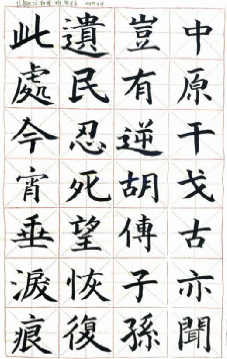 中原干戈古亦聞
豈有逆胡傳子孫
遺民忍死望恢復
此處今宵垂淚痕